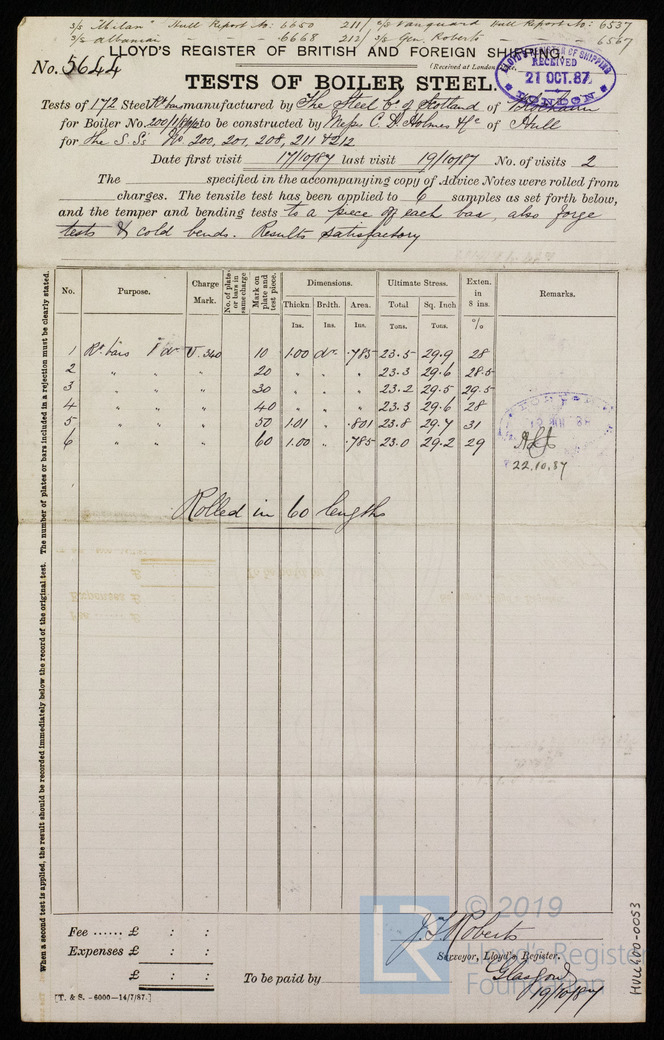 S/S "Milan" Hull Report No: 6650 211/ S/S Vanguard Hull Report No: 6537
S/S Albanian - - - 6668 212/ S/S Gen. Roberts - - - 6567
LLOYD'S REGISTER OF BRITISH AND FOREIGN SHIPPING.
No. 5644
(Received at London
LLOYD'S REGISTER OF SHIPPING
RECEIVED
21 OCT. 87
LONDON
TESTS OF BOILER STEEL.
Tests of 172 Steel Rd bars manufactured by The Steel Co. of Scotland of Blochairn
for Boiler No. 200/1 to be constructed by Messrs C. D. Holmes & Co of Hull
for The S.Ss No. 200, 201, 208, 211 & 212
Date first visit 17/10/87 last visit 19/10/87 No. of visits 2
The specified in the accompanying copy of Advice Notes were rolled from
charges. The tensile test has been applied to 6 samples as set forth below,
and the temper and bending tests to a piece off each bar, also forge
tests & cold bends. Results satisfactory
No. Purpose. Charge Mark. No. of plates or bars in same charge Mark on plate and test piece. Dimensions. Ultimate Stress. Exten. in 8 ins. Remarks.
Thickn. Brdth. Area. Total Sq. Inch
Ins. Ins. Ins. Tons. Tons. %
1 Rd. bars 1" dr. U. 340 10 1.00 dr. .785 23.5 29.9 28
2 " " " 20 " " " 23.3 29.6 28.5
3 " " " 30 " " " 23.2 29.5 29.5
4 " " " 40 " " " 23.3 29.6 28
5 " " " 50 1.01 " .801 23.8 29.7 31
6 " " " 60 1.00 " .785 23.0 29.2 29
22.10.87
Rolled in 60 lengths
When a second test is applied, the result should be recorded immediately below the record of the original test. The number of plates or bars included in a rejection must be clearly stated.
Fee ...... £ : :
Expenses £ : :
£ : :
[T. & S. - 6000—14/7/87.]
To be paid by
J. T. Roberts
Surveyor, Lloyd's Register.
Glasgow
19/10/87
LR
© 2019
Lloyd's Register
Foundation
HUL400-0053